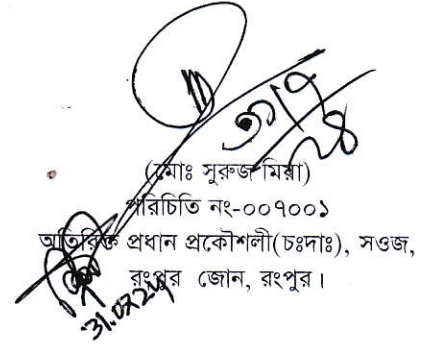 (মোঃ সুরুজ মিয়া)
পরিচিতি নং-০০৭০০১
অতিরিক্ত প্রধান প্রকৌশলী(চঃদাঃ), সওজ,
রংপুর জোন, রংপুর।